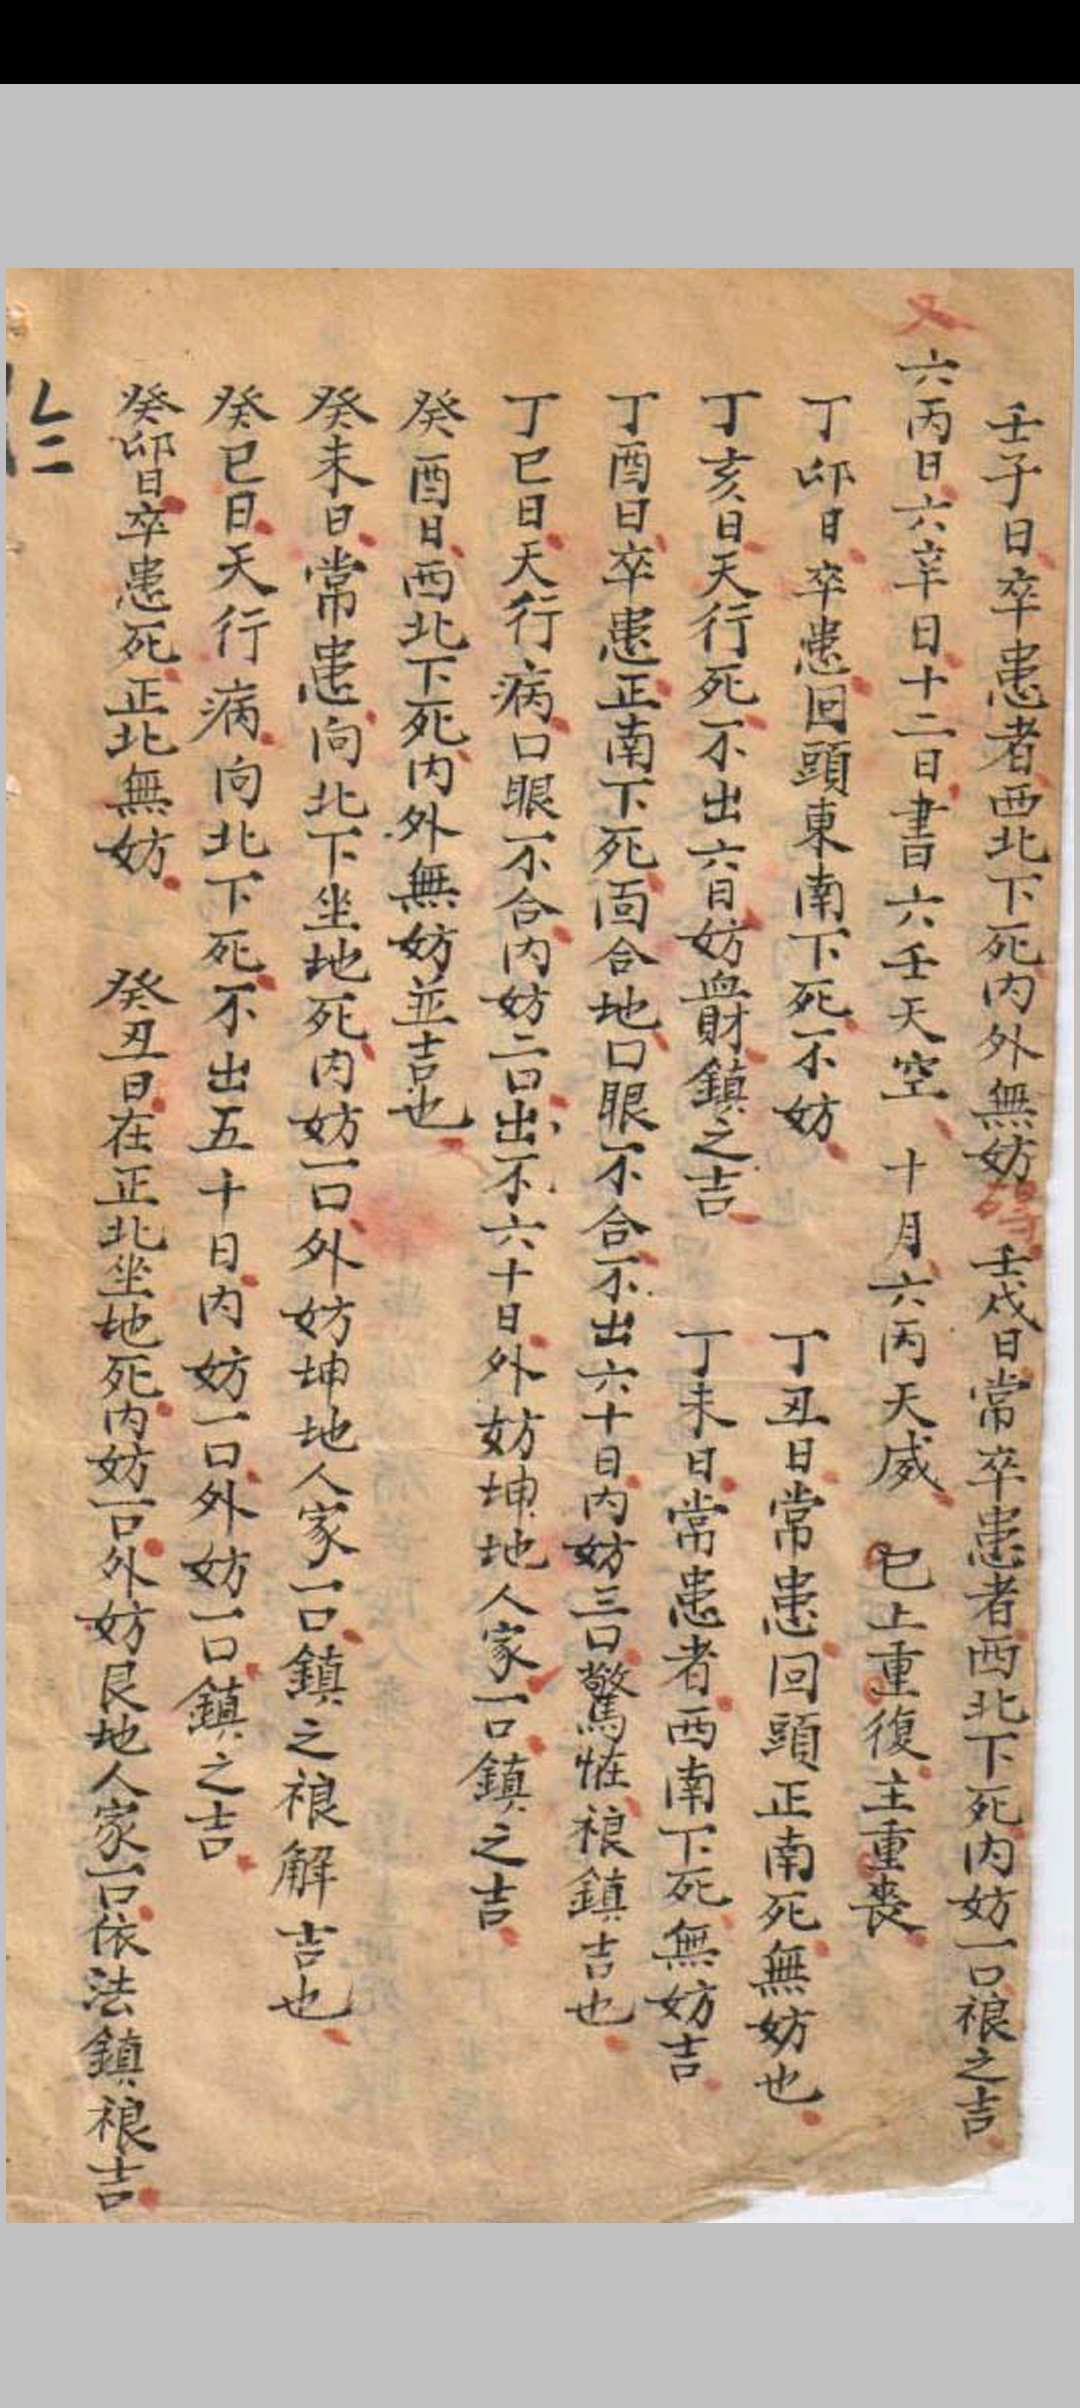 壬子日卒患者西北下死内外無妨 壬戌日常卒患者西北下死内妨一口禳之吉
又
六丙日六辛日十二日書六壬天空 十月六丙天威 巳上重復主重喪
丁卯日卒患回頭東南下死不妨 丁丑日常患回頭正南死無妨也
丁亥日天行死不出六日妨血財鎮之吉 丁未日常患者西南下死無妨吉
丁酉日卒患正南下死面合地口眼不合不出六十日内妨三口驚怪禳鎮吉也
丁巳日天行病口眼不合内妨二口出不六十日外妨坤地人家一口鎮之吉
癸酉日西北下死内外無妨並吉也
癸未日常患向北下坐地死内妨一口外妨坤地人家一口鎮之禳解吉也
癸巳日天行病向北下死不出五十日内妨一口外妨一口鎮之吉
癸卯日卒患死正北無妨 癸丑日在正北坐地死内妨一口外妨艮地人家一口依法鎮禳吉